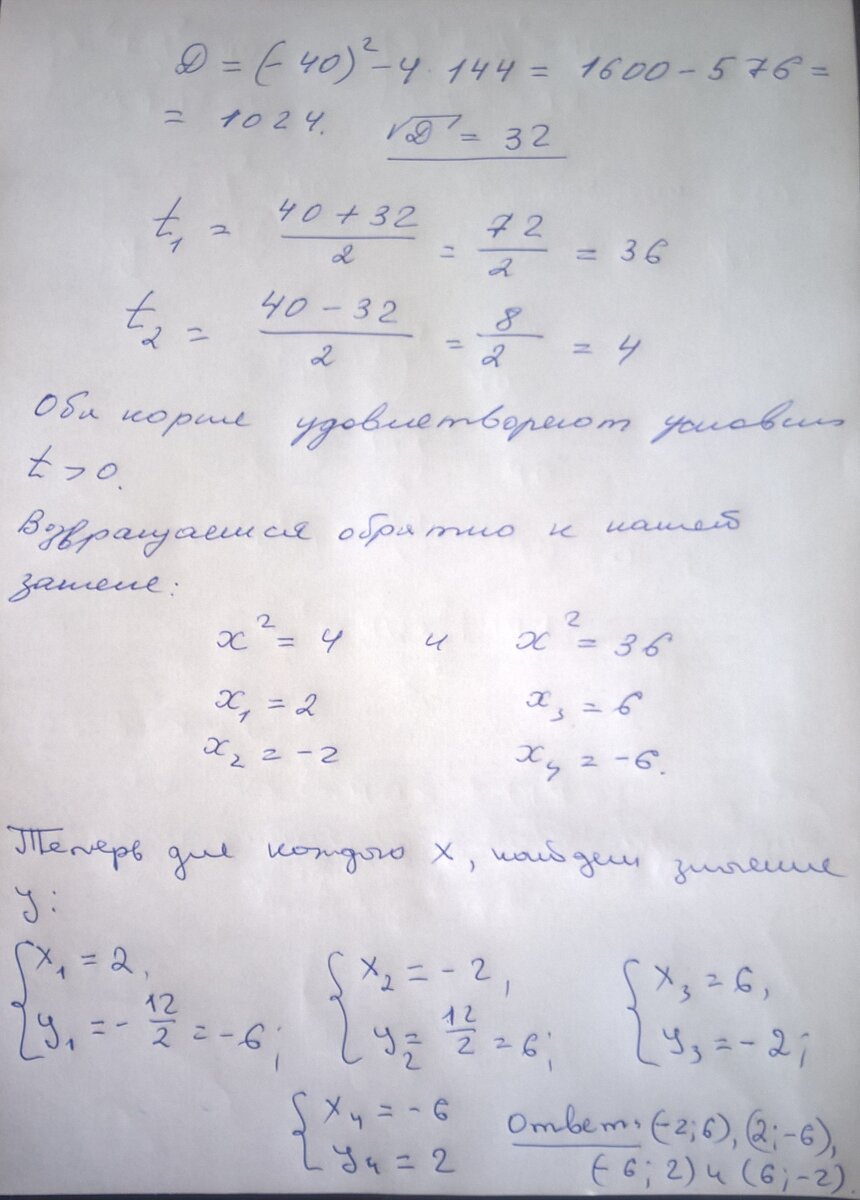 D = (-40)² - 4 · 144 = 1600 - 576 =
= 1024. √D = 32
t₁ = (40 + 32)/2 = 72/2 = 36
t₂ = (40 - 32)/2 = 8/2 = 4
Оба корня удовлетворяют условию
t > 0.
Возвращаемся обратно к нашей
замене:
x² = 4 и x² = 36
x₁ = 2 x₃ = 6
x₂ = -2 x₄ = -6.
Теперь для каждого x, найдем значение
y:
{x₁ = 2, {x₂ = -2, {x₃ = 6,
y₁ = -12/2 = -6; y₂ = 12/2 = 6; y₃ = -2;
{x₄ = -6 Ответ: (-2; 6), (2; -6),
y₄ = 2 (-6; 2) и (6; -2).